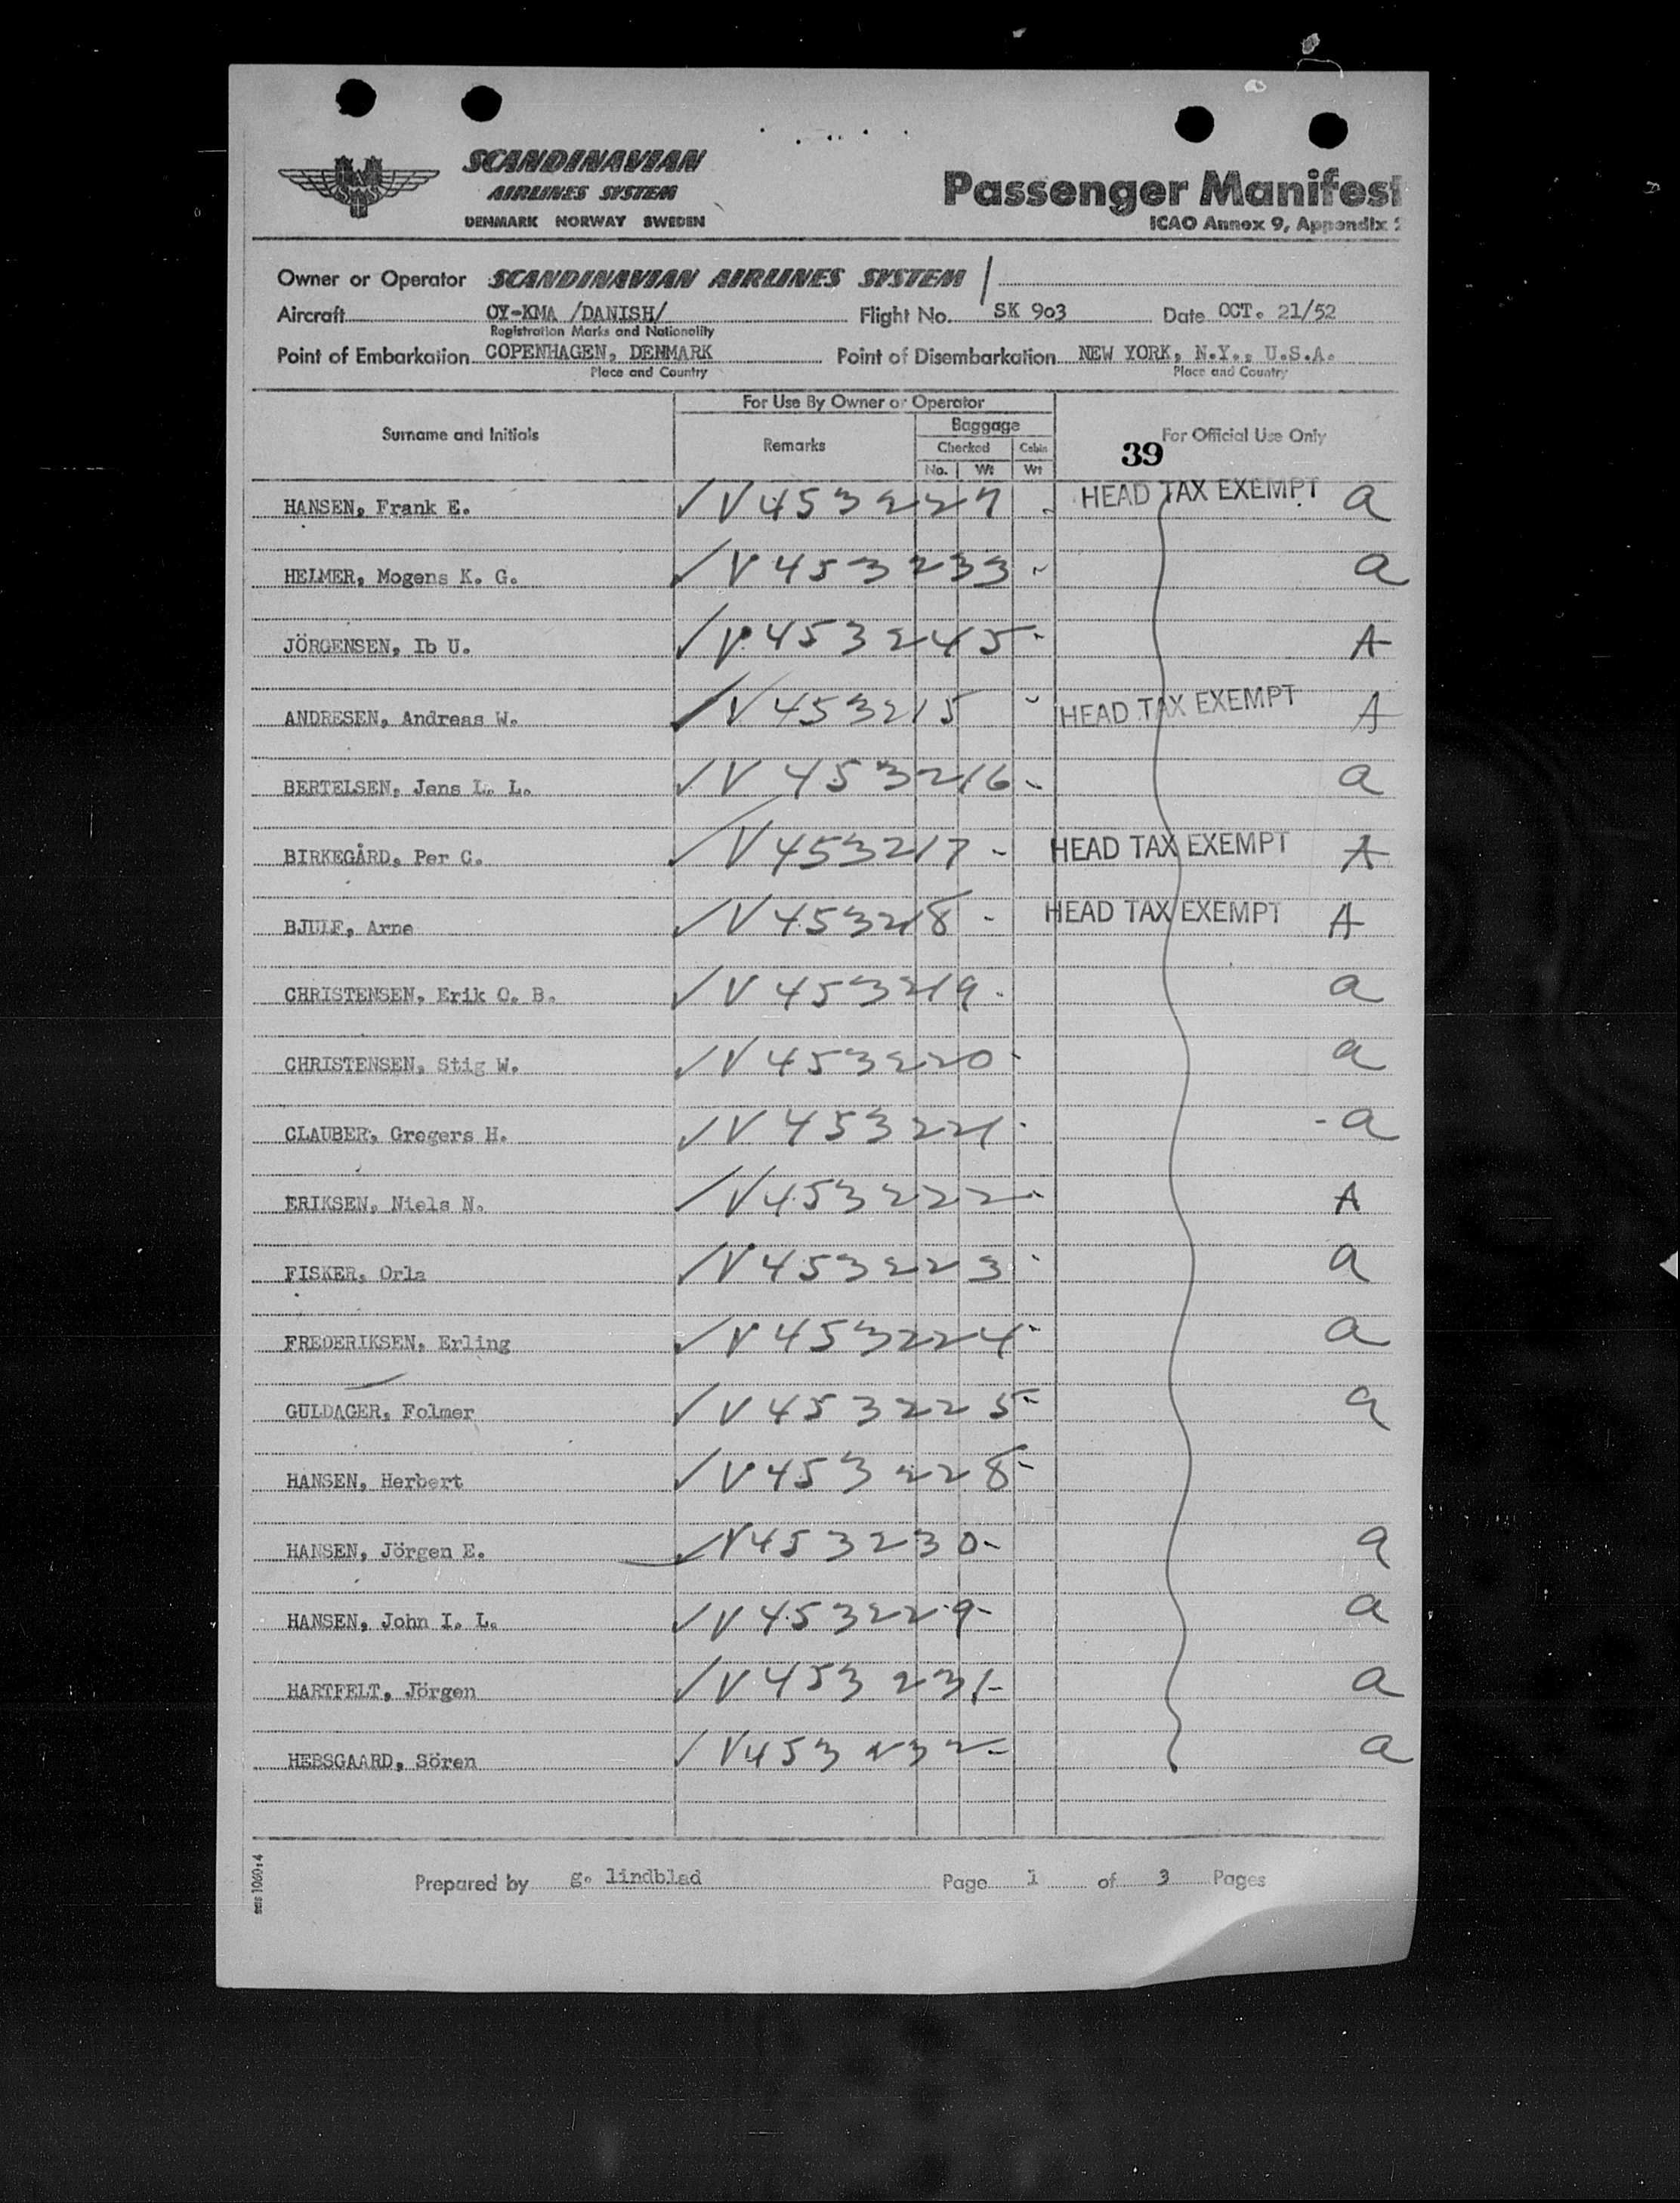 SCANDINAVIAN
AIRLINES SYSTEM
DENMARK NORWAY SWEDEN
Passenger Manifest
ICAO Annex 9, Appendix 2
Owner or Operator SCANDINAVIAN AIRLINES SYSTEM
Aircraft OY-KMA /DANISH/ Flight No. SK 903 Date OCT. 21/52
Registration Marks and Nationality
Point of Embarkation COPENHAGEN, DENMARK Point of Disembarkation NEW YORK, N.Y., U.S.A.
Place and Country Place and Country
For Use By Owner or Operator
Surname and Initials Remarks Baggage For Official Use Only
Checked Cabin
39
No. Wt Wt
HANSEN, Frank E. V453227 HEAD TAX EXEMPT a
HELMER, Mogens K. G. V453233 a
JÖRGENSEN, Ib U. V453245 A
ANDRESEN, Andreas W. V453215 HEAD TAX EXEMPT A
BERTELSEN, Jens L. L. V453216 a
BIRKEGÅRD, Per C. V453217 HEAD TAX EXEMPT A
BJULF, Arne V453218 HEAD TAX EXEMPT A
CHRISTENSEN, Erik O. B. V453219 a
CHRISTENSEN, Stig W. V453220 a
CLAUBER, Gregers H. V453221 a
ERIKSEN, Niels N. V453222 A
FISKER, Orla V453223 a
FREDERIKSEN, Erling V453224 a
GULDAGER, Folmer V453225 a
HANSEN, Herbert V453228
HANSEN, Jörgen E. V453230 a
HANSEN, John I. L. V453229 a
HARTFELT, Jörgen V453231 a
HEBSGAARD, Sören V453232 a
Prepared by g. lindblad Page 1 of 3 Pages
sas 1060:4